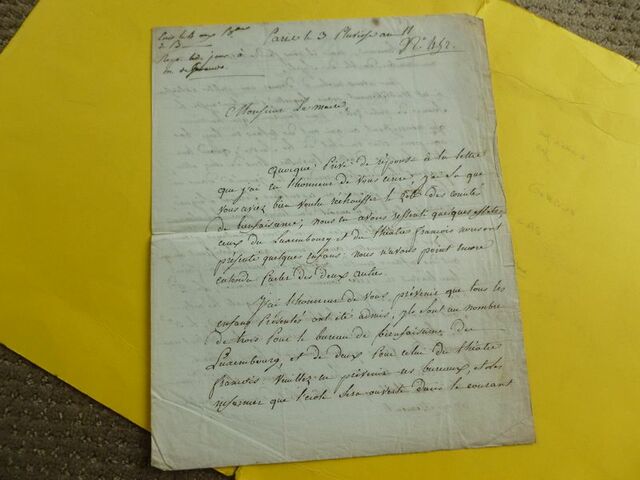 Paris le 3 Pluviose an 11
N° 452.
Monsieur Le maire,
Quoique Privé de réponse à la lettre
que j'ai eu l'honneur de vous écrire, j'ai su que
vous aviez bien voulu réchauffer le Zèle des comités
de bienfaisance; nous en avons ressenti quelques effets,
ceux du Luxembourg et du théâtre françois nous ont
présenté quelques enfans. nous n'avons point encore
entendu parler des deux autres.
J'ai l'honneur de Vous prévenir que tous les
enfans Présentés ont été admis, ils sont au nombre
de trois Pour le bureau de bienfaisance du
Luxembourg, et de deux Pour celui du théâtre
francois Veuillez en prévenir ces bureaux, et les
informer que l'école sera ouverte dans le courant